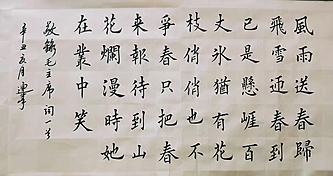 風雨送春歸
飛雪迎春到
已是懸崖百
丈氷猶有花
枝俏俏也不
爭春只把春
来報待到山
花爛漫時她
在叢中笑
敬錄毛主席詞一首
辛丑 月